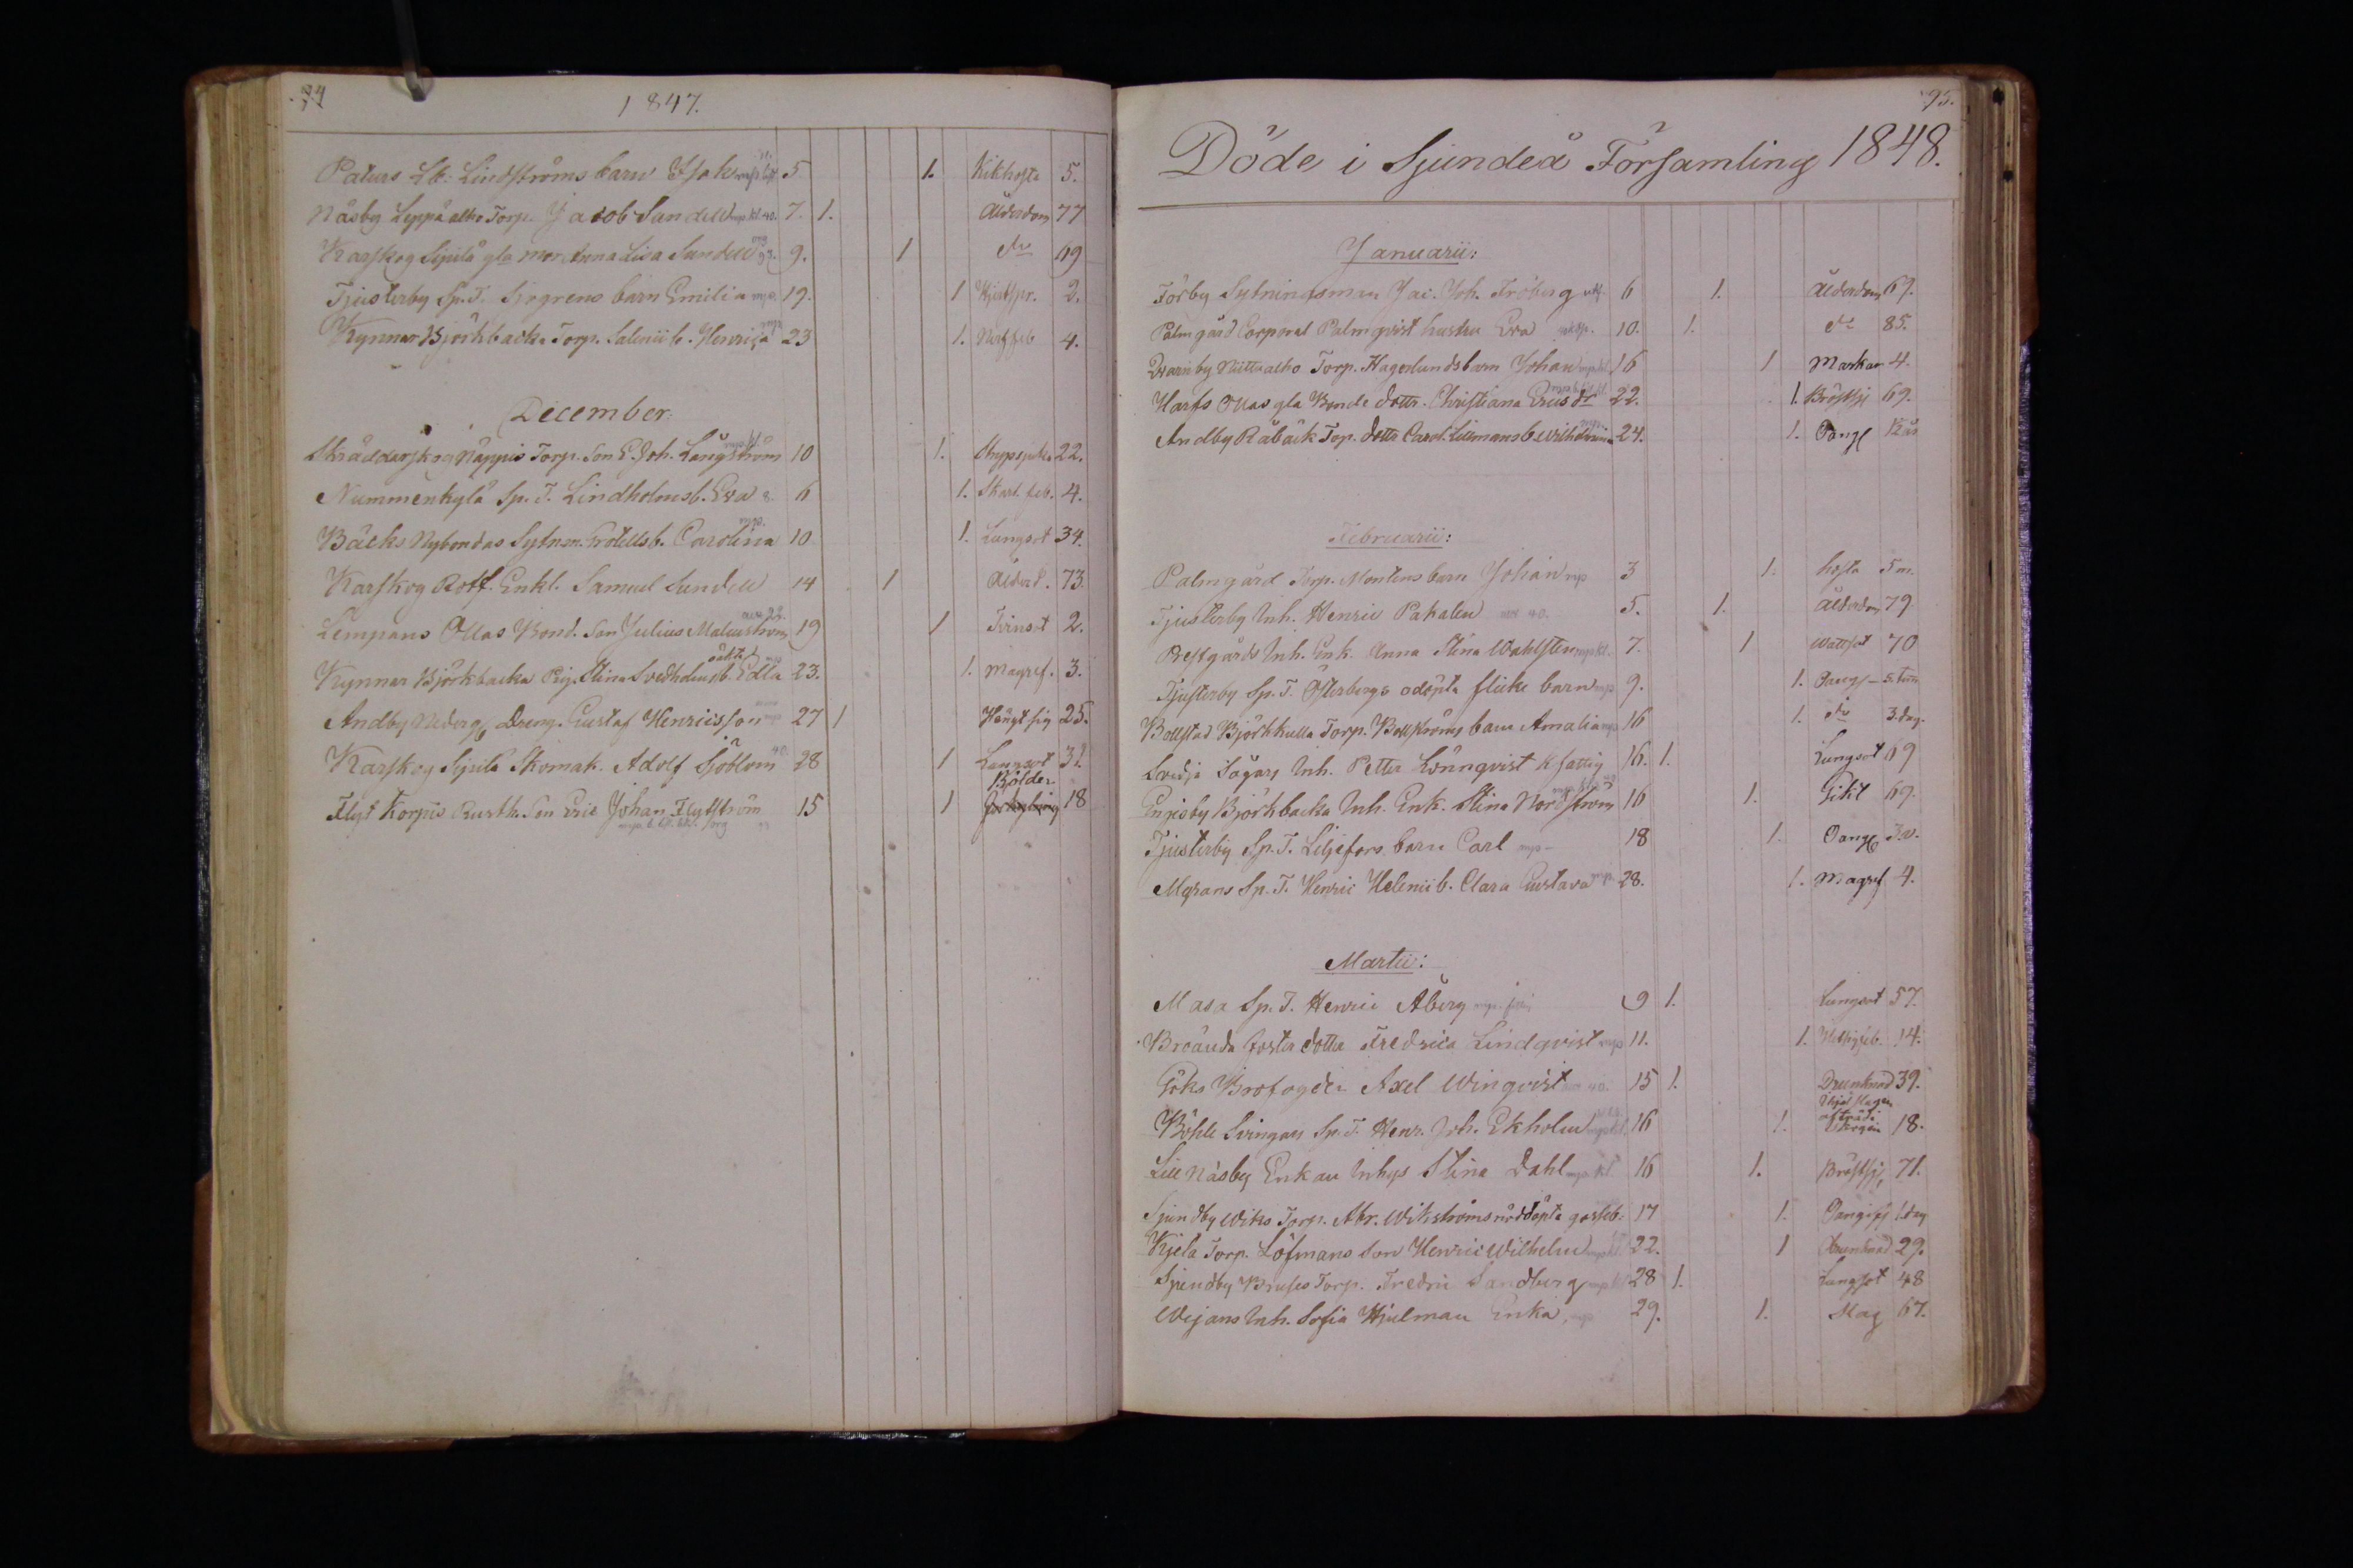 94
1847.
Paturs Sk: Lindströms barn Isak 5 1. Kikhosta 5.
Näsby Leppäalho Torp. Jacob Sundell mp. kl. 40. 7. 1. Ålderdom 77
Karskog Sipilä gla mor Anna Lisa Sundell 9. 1 do 69
Tjusterby Sp. T. Sjögrens barn Emilia mp. 19. 1 2.
Kynnar Björkbacka Torp. Salenii b. Henrica 23 1. Nerffeb 4.
December
Skräddarskog Näppis Torp. Son E. Joh. Långström 10 1. Strypsjuka 22.
Nummenkylä Sp. T. Lindholms b. Eva 6 1. Skarl. feb. 4.
Bäcks Nybondas Sytnm. Grotells b. Carolina 10 1. Lungsot 34.
Karskog Rotf. Enkl. Samuel Sundell 14 1 Ålderd. 73.
Lempans Ollas Bond. Son Julius Malmström 19 1 Tvinsot 2.
Kynnar Björkbacka Pig. Stina Svedholms oäkta b. Edla 23. 1. Magref. 3.
Andby Nederg Dreng. Gustaf Henricsson 27 1 Hängt sig 25.
Karskog Sipilä Skomak. Adolf Sjöblom 40. 28 1 Lungsot 31.
Flyt Korpis Rusth. Son Eric Johan Flytström 15 1 Bölder 18
95.
Döde i Sjundeå Församling 1848.
Januarii:
Förby Sytningsman Jac. Joh. Fröberg 6 1. Ålderdom 69.
Palmgård Corporal Palmqvist hustru Eva 10. 1. do 85.
Qvarnby Niittualho Torp. Hagerlunds barn Johan mp kl 16 1 Maskar 4.
Harfs Ollas gla Bonde dottr. Christiana Ericsdr 22. 1. Bröstsj 69.
Andby Råbäck Top. dottr Carol. Lillmans b. Wilhelmina 24. 1. Oangf ½ år
Februarii:
Palmgård Torp. Montens barn Johan mp 3 1. hosta 5 m.
Tjusterby Inh. Henric Pakalen 40. 5. 1. Ålderdom 79.
Prestgårds Inh. Enk. Anna Stina Wahlsten mp kl. 7. 1 Wattsot 70
Tjusterby Sp. T. Österbergs odöpta flicke barn mp 9. 1. Oangf 5. tim
Bollstad Björkkulla Torp. Bollströms barn Amalia mp 16 1. do 3. dag.
Svidja Sågars Inh. Petter Lönnqvist k fattig 16. 1. Lungsot 69
Engisby Björkbacka Inh. Enk. Stina Nordström 16 1. Gikt 69.
Tjusterby Sp. T. Liljefors barn Carl mp 18 1. Oangf 3. v.
Myrans Sp. T. Henric Helenii b. Clara Gustava mp. 28. 1. Magref 4.
Martii:
Masa Sp. T. Henric Åberg mp. 9 1. Lungsot 57.
Breända foster dotter Fredrica Lindqvist mp 11. 1. 14.
Göks Brofogden Axel Winqvist 40. 15 1. Drunknad 39.
Böhle Svingars Sp. T. Henr. Joh. Ekholm mp kl. 16 1. Ihjelslagen af träd i skogen 18.
Lill Näsby Enkan Inhys Stina Dahl mp kl 16 1. Bröstsj, 71.
Sjundby Wiks Torp. Abr. Wikströms nöddöpta gosseb. 17 1. Oangifv 1. dag
Kjela Torp. Löfmans Son Henric Wilhelm mp kl. 22. 1 Drunknad 29.
Sjundby Bruses Torp. Fredric Sandberg mp kl 28 1. Lungsot 48
Wejans Inh. Sofia Hjulman Enka, mp 29. 1. Slag 67.